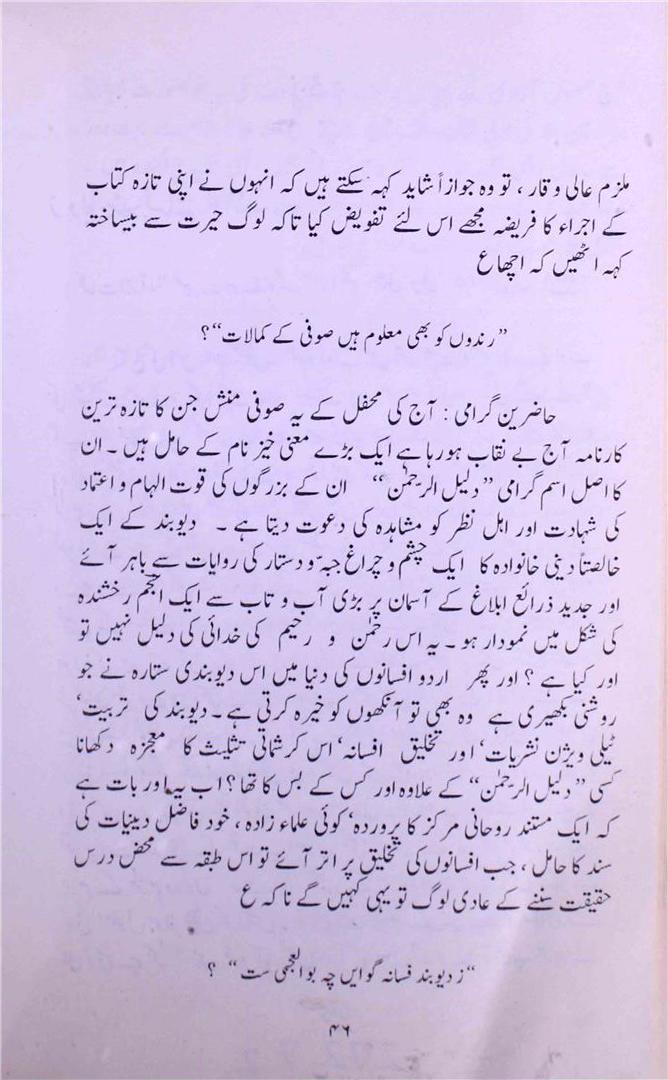 ملزم عالی وقار ، تو وہ جوازاً شاید کہہ سکتے ہیں کہ انہوں نے اپنی تازہ کتاب
کے اجراء کا فریضہ مجھے اس لئے تفویض کیا تاکہ لوگ حیرت سے بیساختہ
کہہ اٹھیں کہ اچھا ع
”رندوں کو بھی معلوم ہیں صوفی کے کمالات“؟
حاضرین گرامی : آج کی محفل کے یہ صوفی منش جن کا تازہ ترین
کارنامہ آج بے نقاب ہورہا ہے ایک بڑے معنی خیز نام کے حامل ہیں ۔ ان
کا اصل اسم گرامی ”دلیل الرحمٰن“ ان کے بزرگوں کی قوت الہام و اعتماد
کی شہادت اور اہل نظر کو مشاہدہ کی دعوت دیتا ہے ۔ دیوبند کے ایک
خالصتاً دینی خانوادہ کا ایک چشم و چراغ جبہ و دستار کی روایات سے باہر آئے
اور جدید ذرائع ابلاغ کے آسمان پر بڑی آب و تاب سے ایک انجم رخشندہ
کی شکل میں نمودار ہو ۔ یہ اس رحمٰن و رحیم کی خدائی کی دلیل نہیں تو
اور کیا ہے ؟ اور پھر اردو افسانوں کی دنیا میں اس دیوبندی ستارہ نے جو
روشنی بکھیری ہے وہ بھی تو آنکھوں کو خیرہ کرتی ہے ۔ دیوبند کی تربیت‘
ٹیلی ویژن نشریات‘ اور تخلیق افسانہ‘ اس کرشماتی تثلیث کا معجزہ دکھانا
کسی ”دلیل الرحمٰن“ کے علاوہ اور کس کے بس کا تھا ؟ اب یہ اور بات ہے
کہ ایک مستند روحانی مرکز کا پروردہ‘ کوئی علماء زادہ ، خود فاضل دینیات کی
سند کا حامل ، جب افسانوں کی تخلیق پر اتر آئے تو اس طبقہ سے محض درس
حقیقت سننے کے عادی لوگ تو یہی کہیں گے نا کہ ع
”ز دیوبند فسانہ گو ایں چہ بوالعجبی ست“ ؟
۴۶